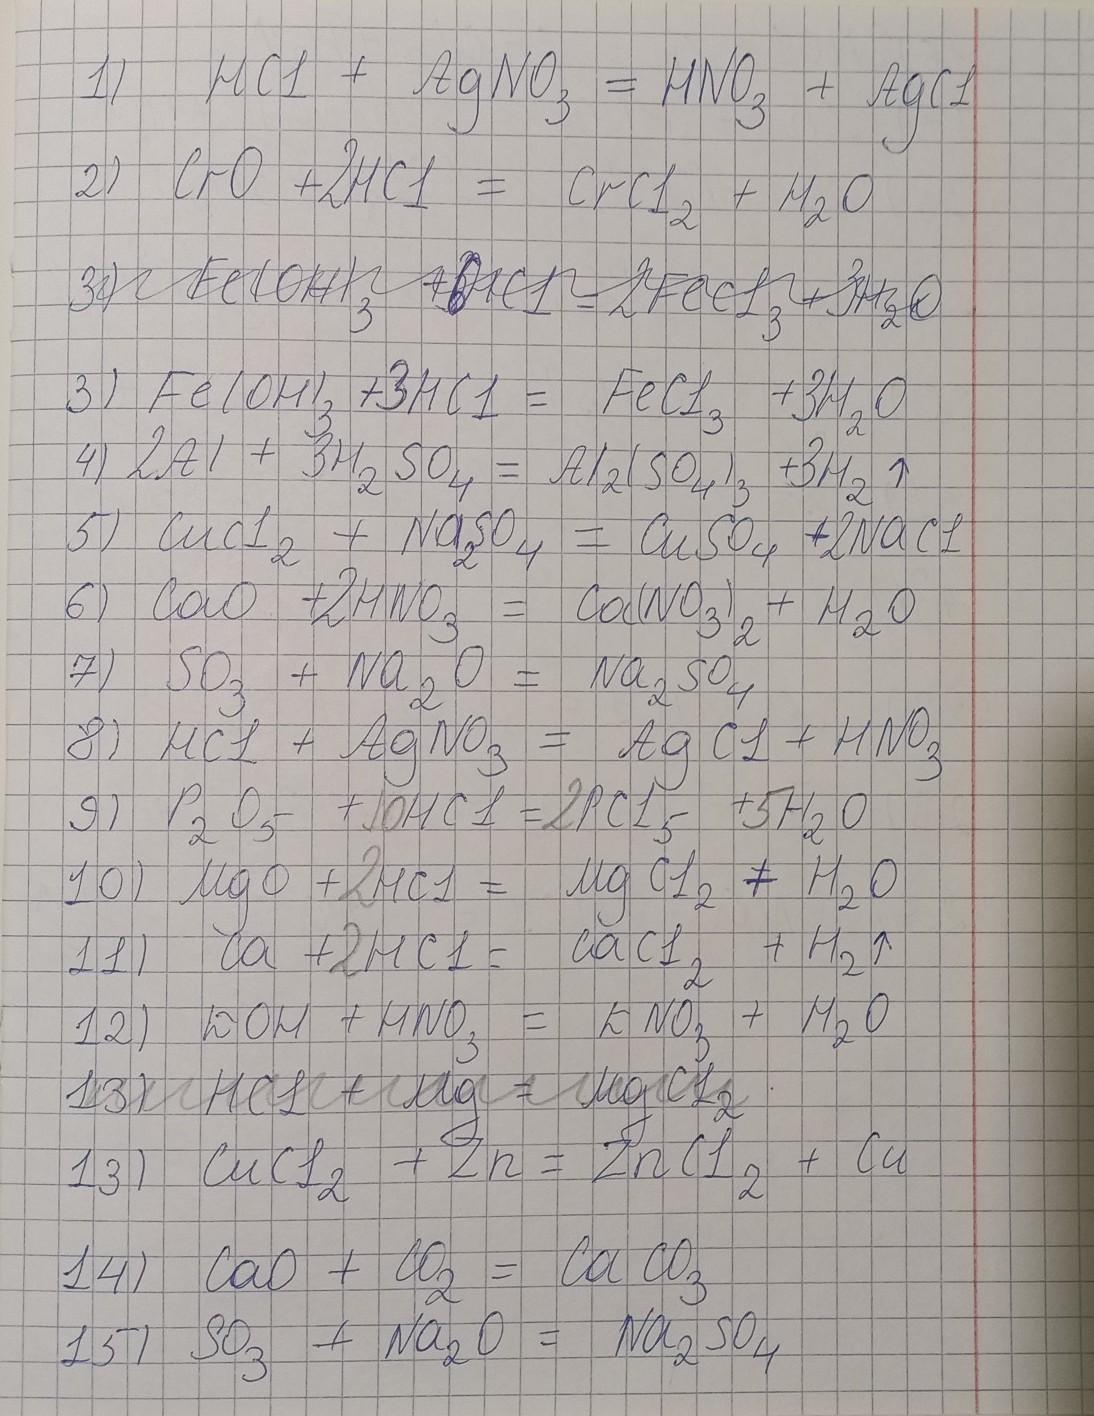 1) HCl + AgNO₃ = HNO₃ + AgCl
2) CrO + 2HCl = CrCl₂ + H₂O
3) Fe(OH)₃ + 6HCl = 2FeCl₃ + 3H₂O
3) Fe(OH)₃ + 3HCl = FeCl₃ + 3H₂O
4) 2Al + 3H₂SO₄ = Al₂(SO₄)₃ + 3H₂↑
5) CuCl₂ + Na₂SO₄ = CuSO₄ + 2NaCl
6) CaO + 2HNO₃ = Ca(NO₃)₂ + H₂O
7) SO₃ + Na₂O = Na₂SO₄
8) HCl + AgNO₃ = AgCl + HNO₃
9) P₂O₅ + 10HCl = 2PCl₅ + 5H₂O
10) MgO + 2HCl = MgCl₂ + H₂O
11) Ca + 2HCl = CaCl₂ + H₂↑
12) KOH + HNO₃ = KNO₃ + H₂O
13) HCl + Mg = MgCl₂
13) CuCl₂ + Zn = ZnCl₂ + Cu
14) CaO + CO₂ = CaCO₃
15) SO₃ + Na₂O = Na₂SO₄